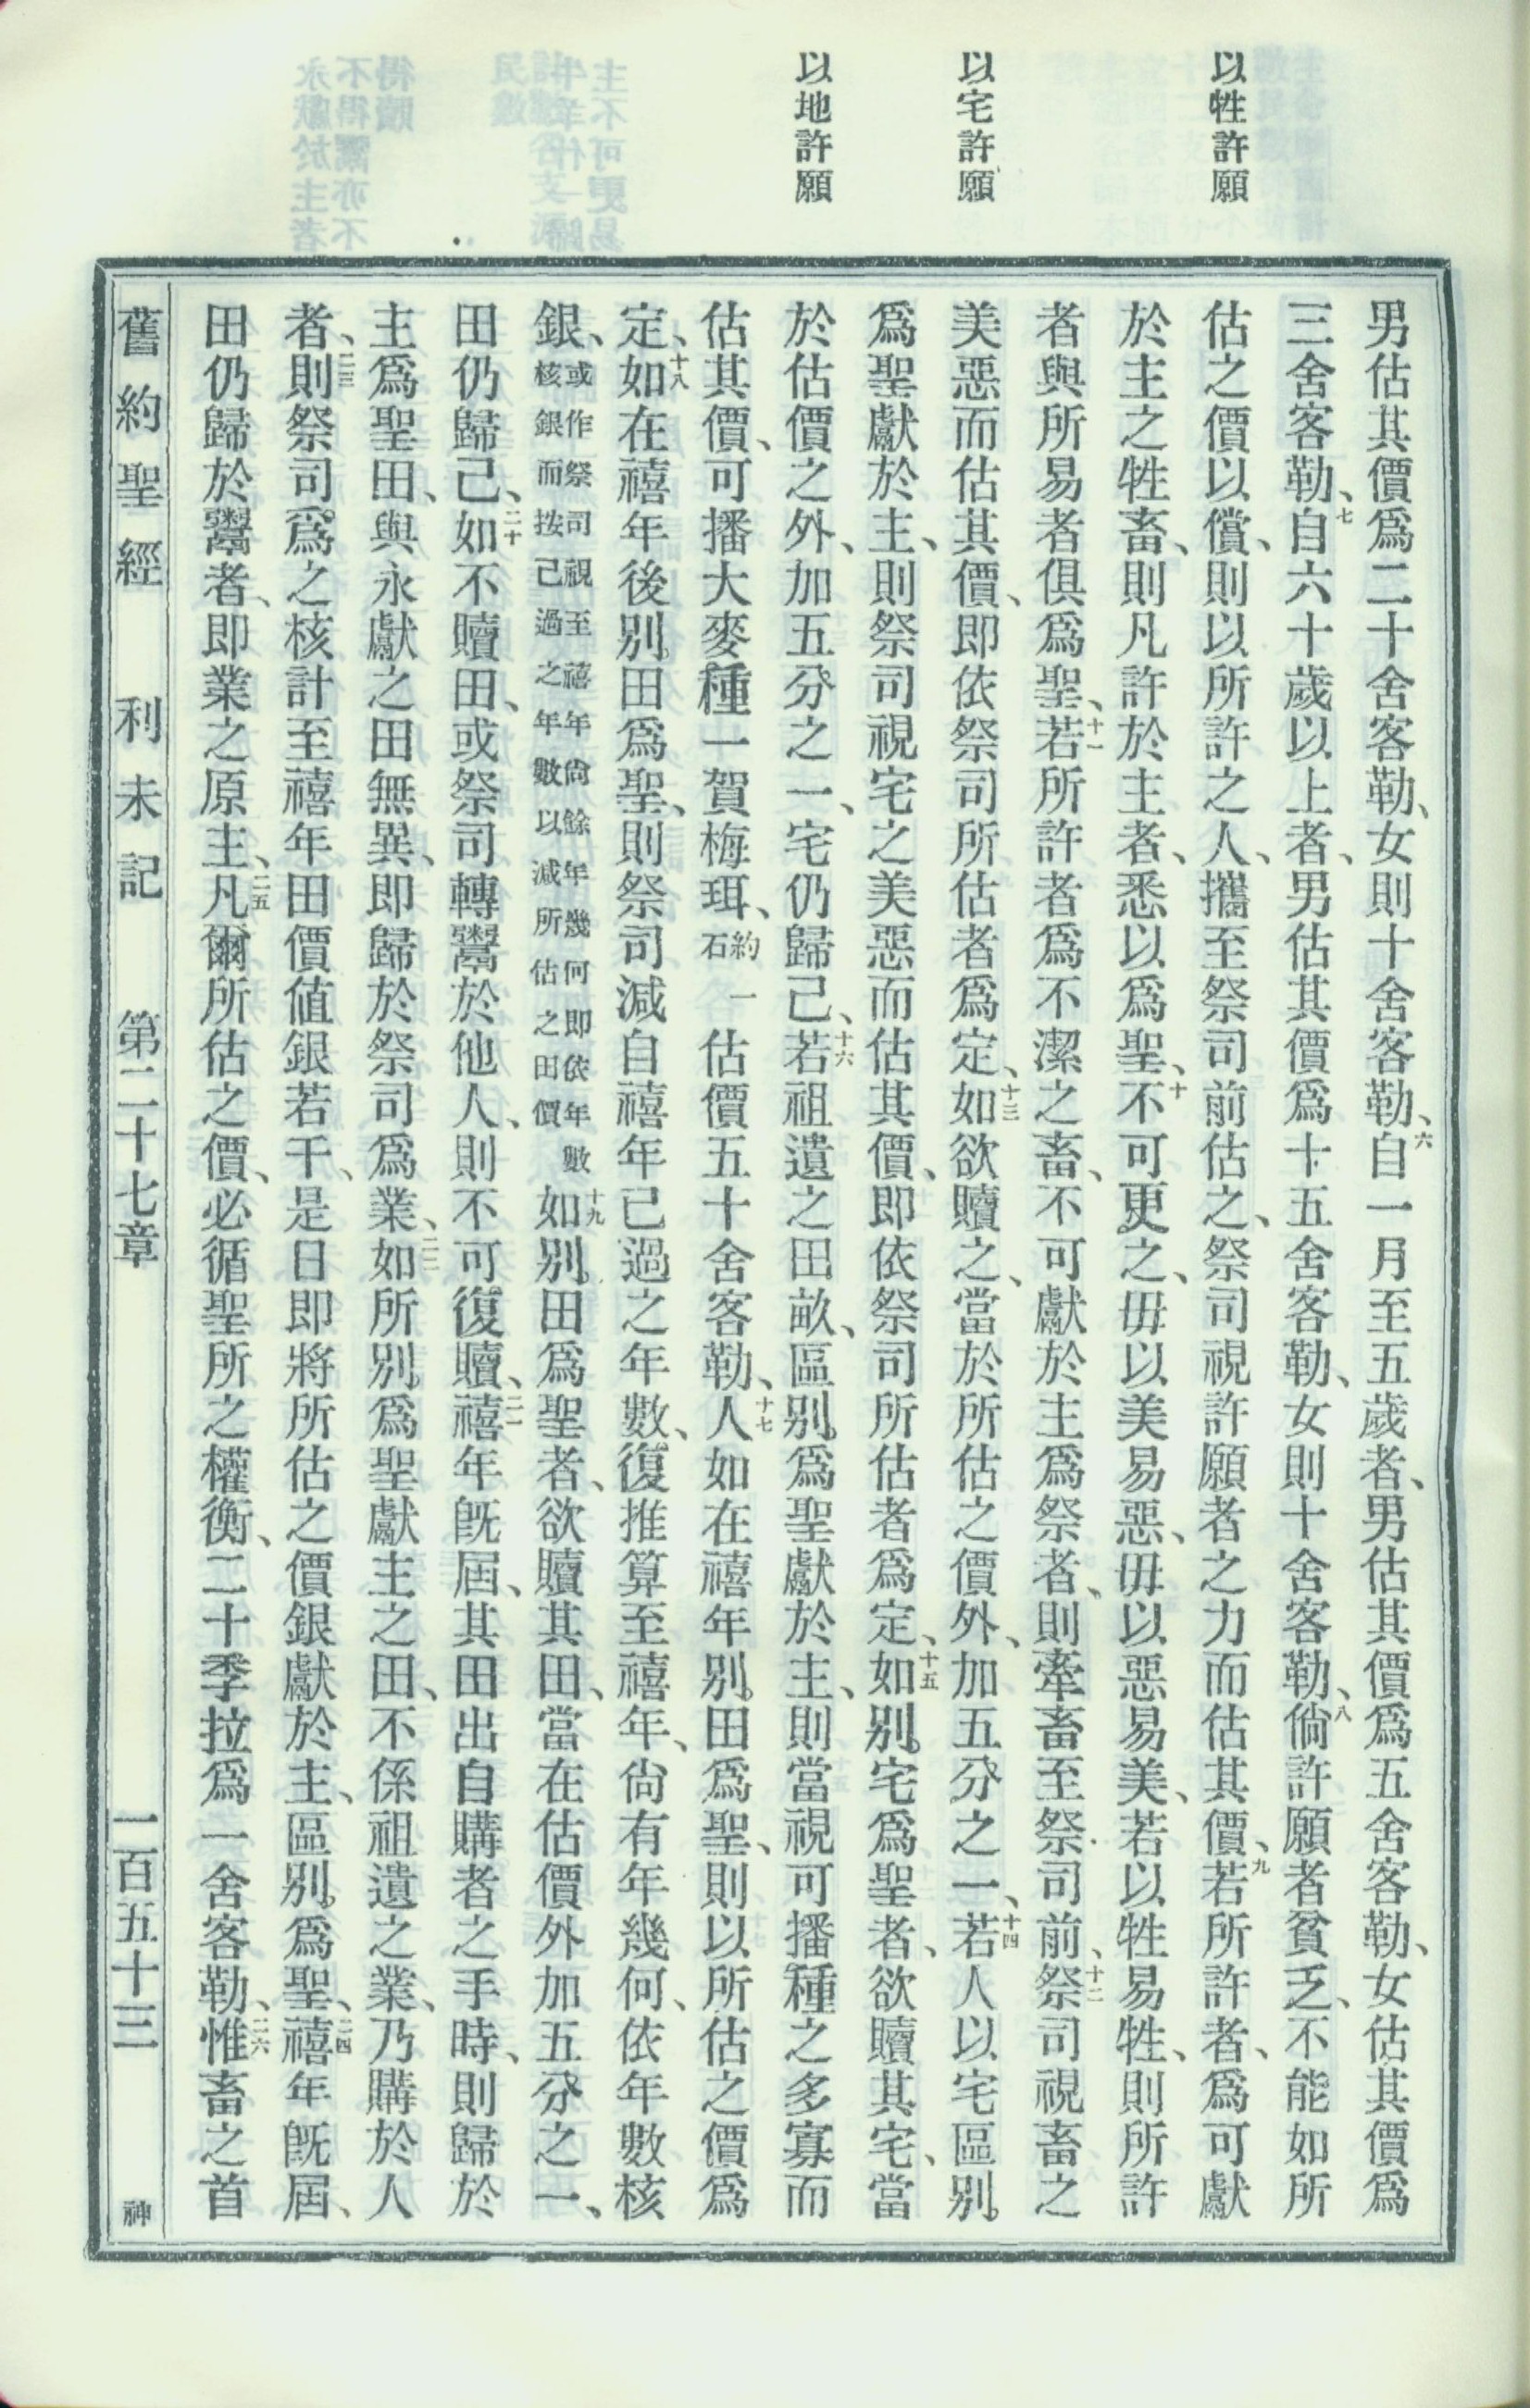 以牲許願
以宅許願
以地許願
男估其價爲二十舍客勒、女則十舍客勒、六自一月至五歲者、男估其價爲五舍客勒、女估其價爲
三舍客勒、七自六十歲以上者、男估其價爲十五舍客勒、女則十舍客勒、八倘許願者貧乏、不能如所
估之價以償、則以所許之人、攜至祭司前估之、祭司視許願者之力而估其價、九若所許者、爲可獻
於主之牲畜、則凡許於主者、悉以爲聖、十不可更之、毋以美易惡、毋以惡易美、若以牲易牲、則所許
者與所易者俱爲聖、十一若所許者爲不潔之畜、不可獻於主爲祭者、則牽畜至祭司前、十二祭司視畜之
美惡而估其價、即依祭司所估者爲定、十三如欲贖之、當於所估之價外、加五分之一、十四若人以宅區別。
爲聖獻於主、則祭司視宅之美惡而估其價、即依祭司所估者爲定、十五如別。宅爲聖者、欲贖其宅、當
於估價之外、加五分之一、宅仍歸己、十六若祖遺之田畝、區別。爲聖獻於主、則當視可播種之多寡而
估其價、可播大麥種一賀梅珥、約一石估價五十舍客勒、十七人如在禧年別。田爲聖、則以所估之價爲
定、十八如在禧年後別。田爲聖、則祭司減自禧年已過之年數、復推算至禧年、尙有年幾何、依年數核
銀、或作祭司視至禧年尙餘年幾何即依年數核銀而按已過之年數以減所估之田價十九如別。田爲聖者、欲贖其田、當在估價外加五分之一、
田仍歸己、二十如不贖田、或祭司轉鬻於他人、則不可復贖、二一禧年旣屆、其田出自購者之手時、則歸於
主爲聖田、與永獻之田無異、即歸於祭司爲業、二二如所別。爲聖獻主之田、不係祖遺之業、乃購於人
者、二三則祭司爲之核計至禧年田價值銀若干、是日即將所估之價銀獻於主、區別。爲聖、二四禧年旣屆、
田仍歸於鬻者、即業之原主、二五凡爾所估之價、必循聖所之權衡、二十季拉爲一舍客勒、二六惟畜之首
舊約聖經 利未記 第二十七章 一百五十三 神